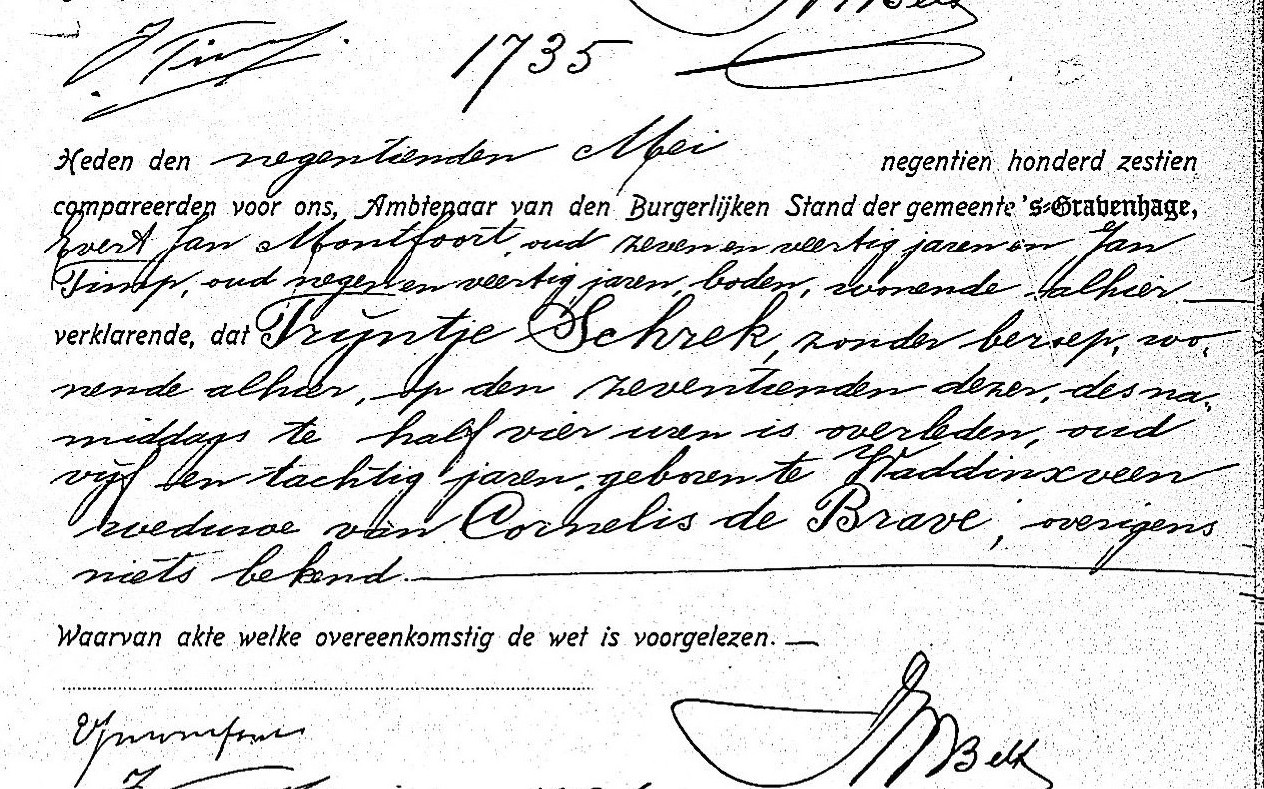 J Timp
1735
Heden den negentienden Mei negentien honderd zestien
compareerden voor ons, Ambtenaar van den Burgerlijken Stand der gemeente 's=Gravenhage,
Evert Jan Montfoort, oud zeven en veertig jaren en Jan
Timp, oud negen en veertig jaren, boden, wonende alhier
verklarende, dat Trijntje Schrek, zonder beroep, wo-
nende alhier, op den zeventienden dezer, des na-
middags te half vier uren is overleden, oud
vijf en tachtig jaren, geboren te Waddinxveen
weduwe van Cornelis de Brave, overigens
niets bekend.
Waarvan akte welke overeenkomstig de wet is voorgelezen.
Belt